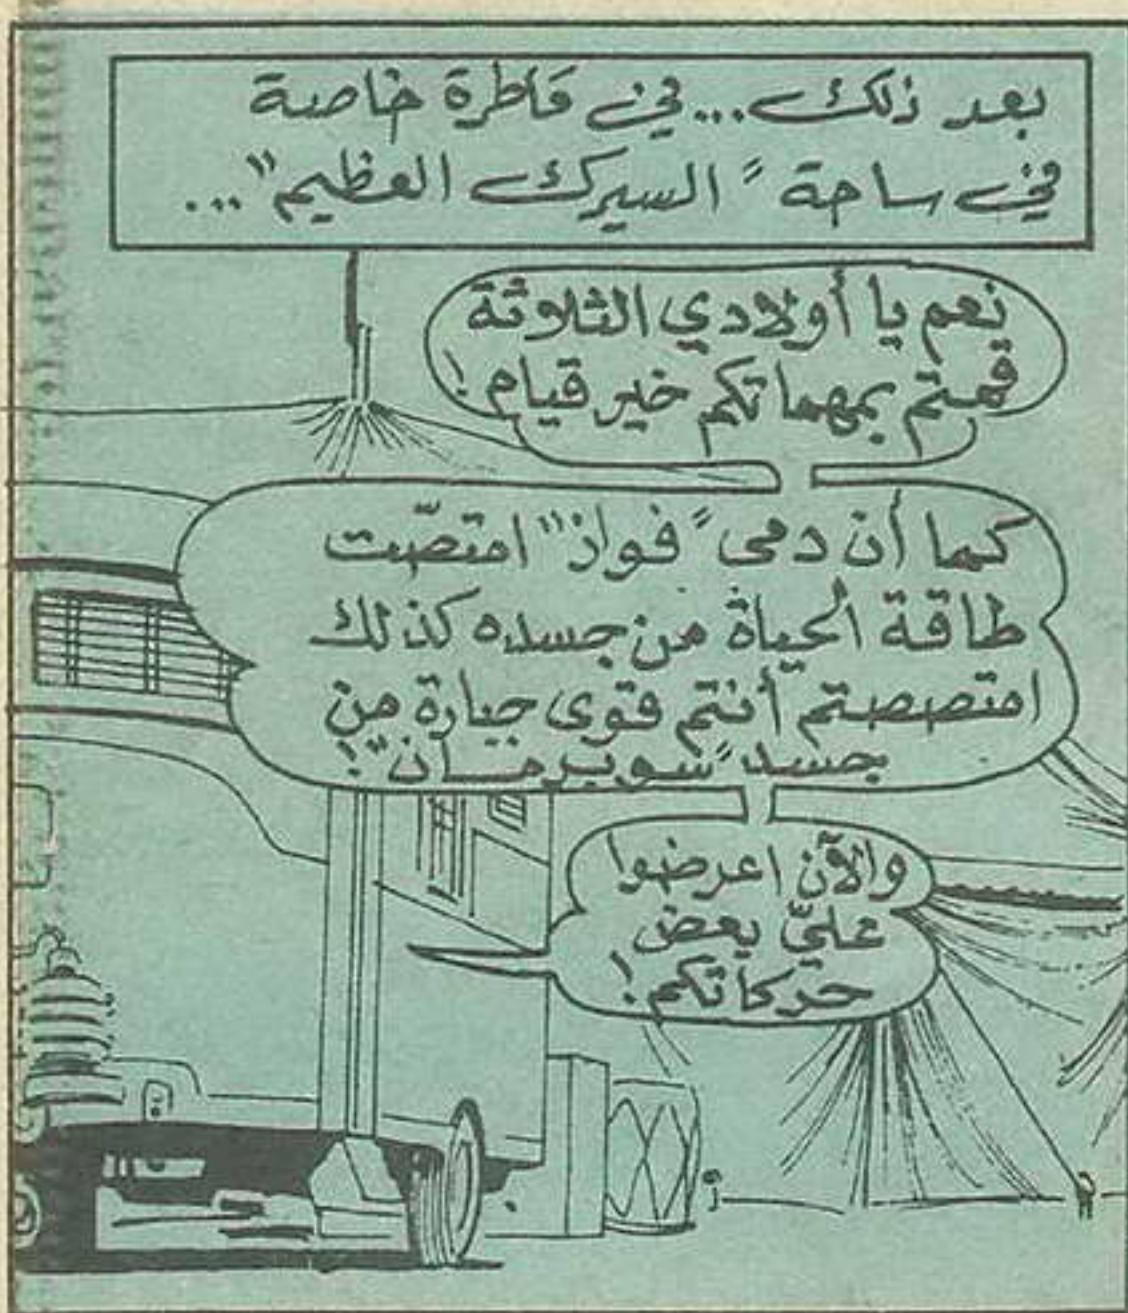 بعد ذلك... في قاطرة خاصة
في ساحة "السيرك العظيم"...
نعم يا أولادي الثلاثة
قمتم بمهماتكم خير قيام!
كما أن دمى "فواز" امتصّت
طاقة الحياة من جسده كذلك
امتصصتم أنتم قوى جبارة من
جسد "سوبرمان"!
والآن اعرضوا
عليّ بعض
حركاتكم!